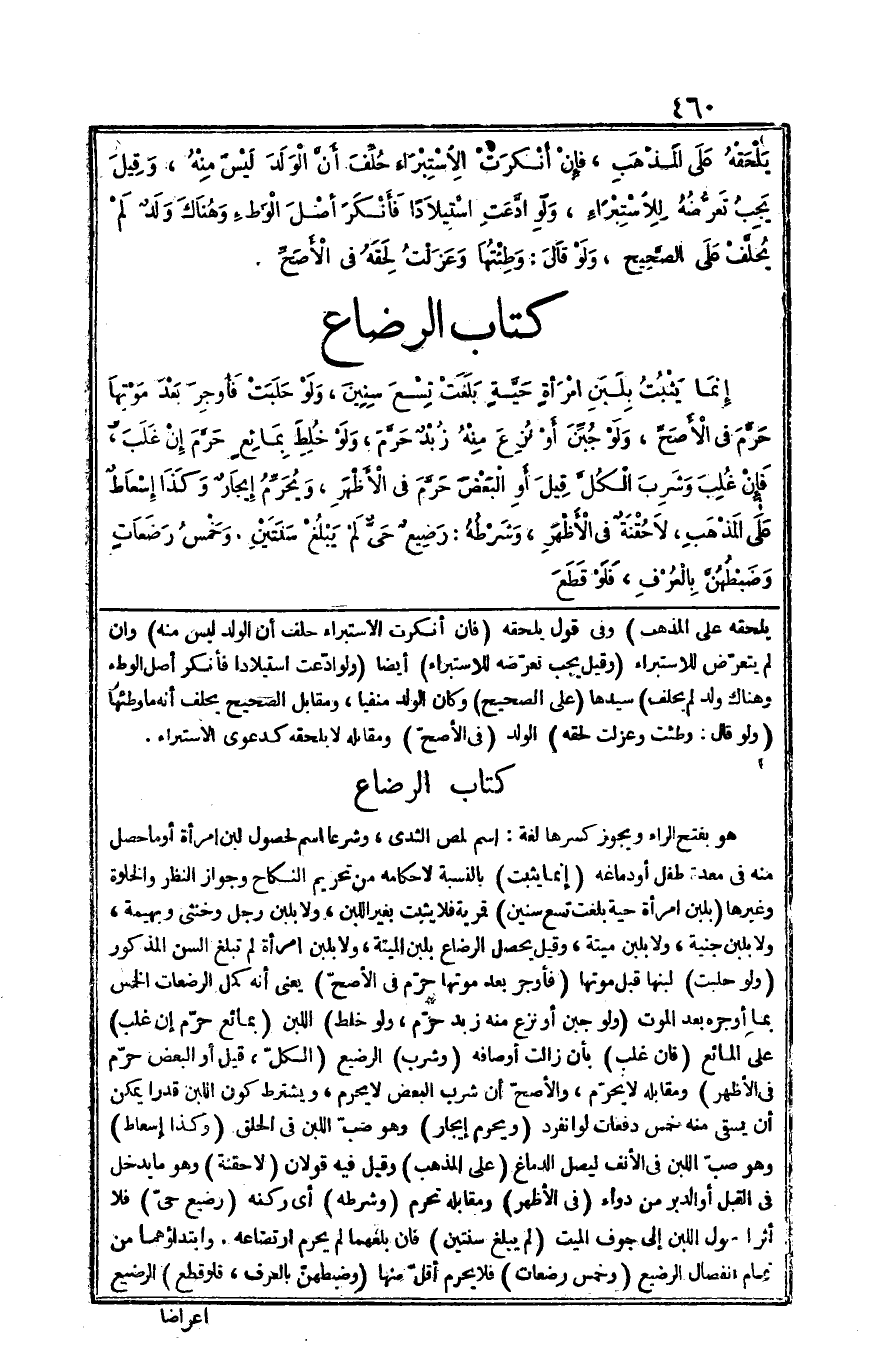 ٤٦٠
يَلْحَقْهُ عَلَى الْمَذْهَبِ ، فَإِنْ أَنْكَرَتْ الِاسْتِبْرَاءَ حُلِّفَ أَنَّ الْوَلَدَ لَيْسَ مِنْهُ ، وَقِيلَ
يَجِبُ تَعَرُّضُهُ لِلِاسْتِبْرَاءِ ، وَلَوِ ادَّعَتِ اسْتِيلَادًا فَأَنْكَرَ أَصْلَ الْوَطْءِ وَهُنَاكَ وَلَدٌ لَمْ
يُحَلَّفْ عَلَى الصَّحِيحِ ، وَلَوْ قَالَ : وَطِئْتُهَا وَعَزَلْتُ لَحِقَهُ فِى الْأَصَحِّ .
كتاب الرضاع
إِنَّمَا يَثْبُتُ بِلَبَنِ امْرَأَةٍ حَيَّةٍ بَلَغَتْ تِسْعَ سِنِينَ ، وَلَوْ حَلَبَتْ فَأُوجِرَ بَعْدَ مَوْتِهَا
حَرَّمَ فِى الْأَصَحِّ ، وَلَوْ جُبِّنَ أَوْ نُزِعَ مِنْهُ زُبْدٌ حَرَّمَ ، وَلَوْ خُلِطَ بِمَائِعٍ حَرَّمَ إِنْ غَلَبَ ،
فَإِنْ غُلِبَ وَشَرِبَ الْكُلَّ قِيلَ أَوِ الْبَعْضَ حَرَّمَ فِى الْأَظْهَرِ ، وَيُحَرِّمُ إِيجَارٌ وَكَذَا إِسْعَاطٌ
عَلَى الْمَذْهَبِ ، لَا حُقْنَةٌ فِى الْأَظْهَرِ ، وَشَرْطُهُ : رَضِيعٌ حَىٌّ لَمْ يَبْلُغْ سَنَتَيْنِ . وَخَمْسُ رَضَعَاتٍ
وَضَبْطُهُنَّ بِالْعُرْفِ ، فَلَوْ قَطَعَ
يلحقه على المذهب ) وفى قول يلحقه ( فان أنكرت الاستبراء حلف أن الولد ليس منه ) وان
لم يتعرّض للاستبراء ( وقيل يجب تعرّضه للاستبراء ) أيضا ( ولو ادّعت استيلادا فأنكر أصل الوطء
وهناك ولد لم يحلف ) سيدها ( على الصحيح ) وكان الولد منفيا ، ومقابل الصحيح يحلف أنه ما وطئها
( ولو قال : وطئت وعزلت لحقه ) الولد ( فى الأصحّ ) ومقابله لا يلحقه كدعوى الاستبراء .
كتاب الرضاع
هو بفتح الراء ويجوز كسرها لغة : اسم لمص الثدى ، وشرعا اسم لحصول لبن امرأة أو ما حصل
منه فى معدة طفل أو دماغه ( إنما يثبت ) بالنسبة لاحكامه من تحريم النكاح وجواز النظر والخلوة
وغيرها ( بلبن امرأة حية بلغت تسع سنين ) قمرية فلا يثبت بغير اللبن ، ولا بلبن رجل وخنثى وبهيمة ،
ولا بلبن جنية ، ولا بلبن ميتة ، وقيل يحصل الرضاع بلبن الميتة ، ولا بلبن امرأة لم تبلغ السن المذكور
( ولو حلبت ) لبنها قبل موتها ( فأوجر بعد موتها حرّم فى الأصحّ ) يعنى أنه كمل الرضعات الخمس
بما أوجره بعد الموت ( ولو جبن أو نزع منه زبد حرّم ، ولو خلط ) اللبن ( بمائع حرّم إن غلب )
على المائع ( فان غلب ) بأن زالت أوصافه ( وشرب ) الرضيع ( الكلّ ، قيل أو البعض حرّم
فى الأظهر ) ومقابله لا يحرّم ، والأصحّ أن شرب البعض لا يحرم ، ويشترط كون اللبن قدرا يمكن
أن يسقى منه خمس دفعات لو انفرد ( ويحرم إيجار ) وهو صبّ اللبن فى الحلق ( وكذا إسعاط )
وهو صبّ اللبن فى الأنف ليصل الدماغ ( على المذهب ) وقيل فيه قولان ( لا حقنة ) وهو ما يدخل
فى القبل أو الدبر من دواء ( فى الأظهر ) ومقابله تحرم ( وشرطه ) أى ركنه ( رضيع حىّ ) فلا
أثر ول اللبن إلى جوف الميت ( لم يبلغ سنتين ) فان بلغهما لم يحرم ارتضاعه . وابتداؤهما من
تمام انفصال الرضيع ( وخمس رضعات ) فلا يحرم أقلّ منها ( وضبطهنّ بالعرف ، فلو قطع ) الرضيع
اعراضا